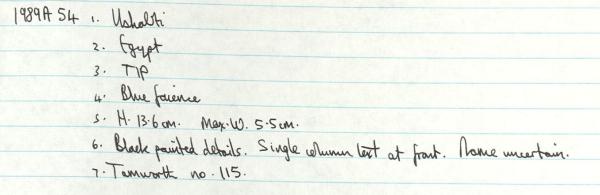 1989A54 1. Ushabti
2. Egypt
3. TIP
4. Blue faience
5. H. 13.6cm. Max. W. 5.5cm.
6. Black painted details. Single column text at front. Name uncertain.
7. Tamworth no. 115.